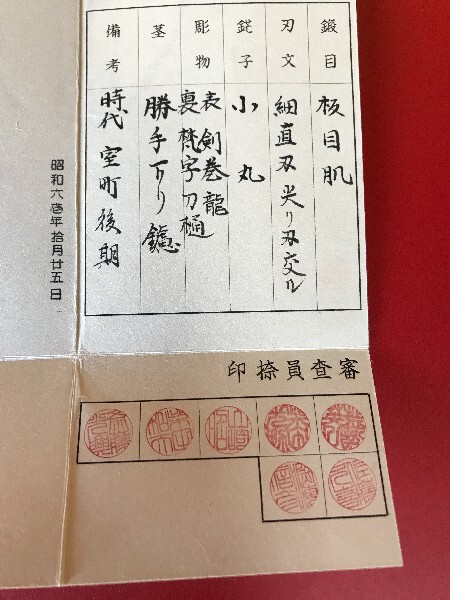 鍛目
板目肌
刃文
細直刃尖リ刃交ル
鋩子
小丸
彫物
表剣巻龍
裏梵字刀樋
茎
勝手下り鑢
備考
時代 室町後期
昭和六壱年拾月廿五日
審査員捺印